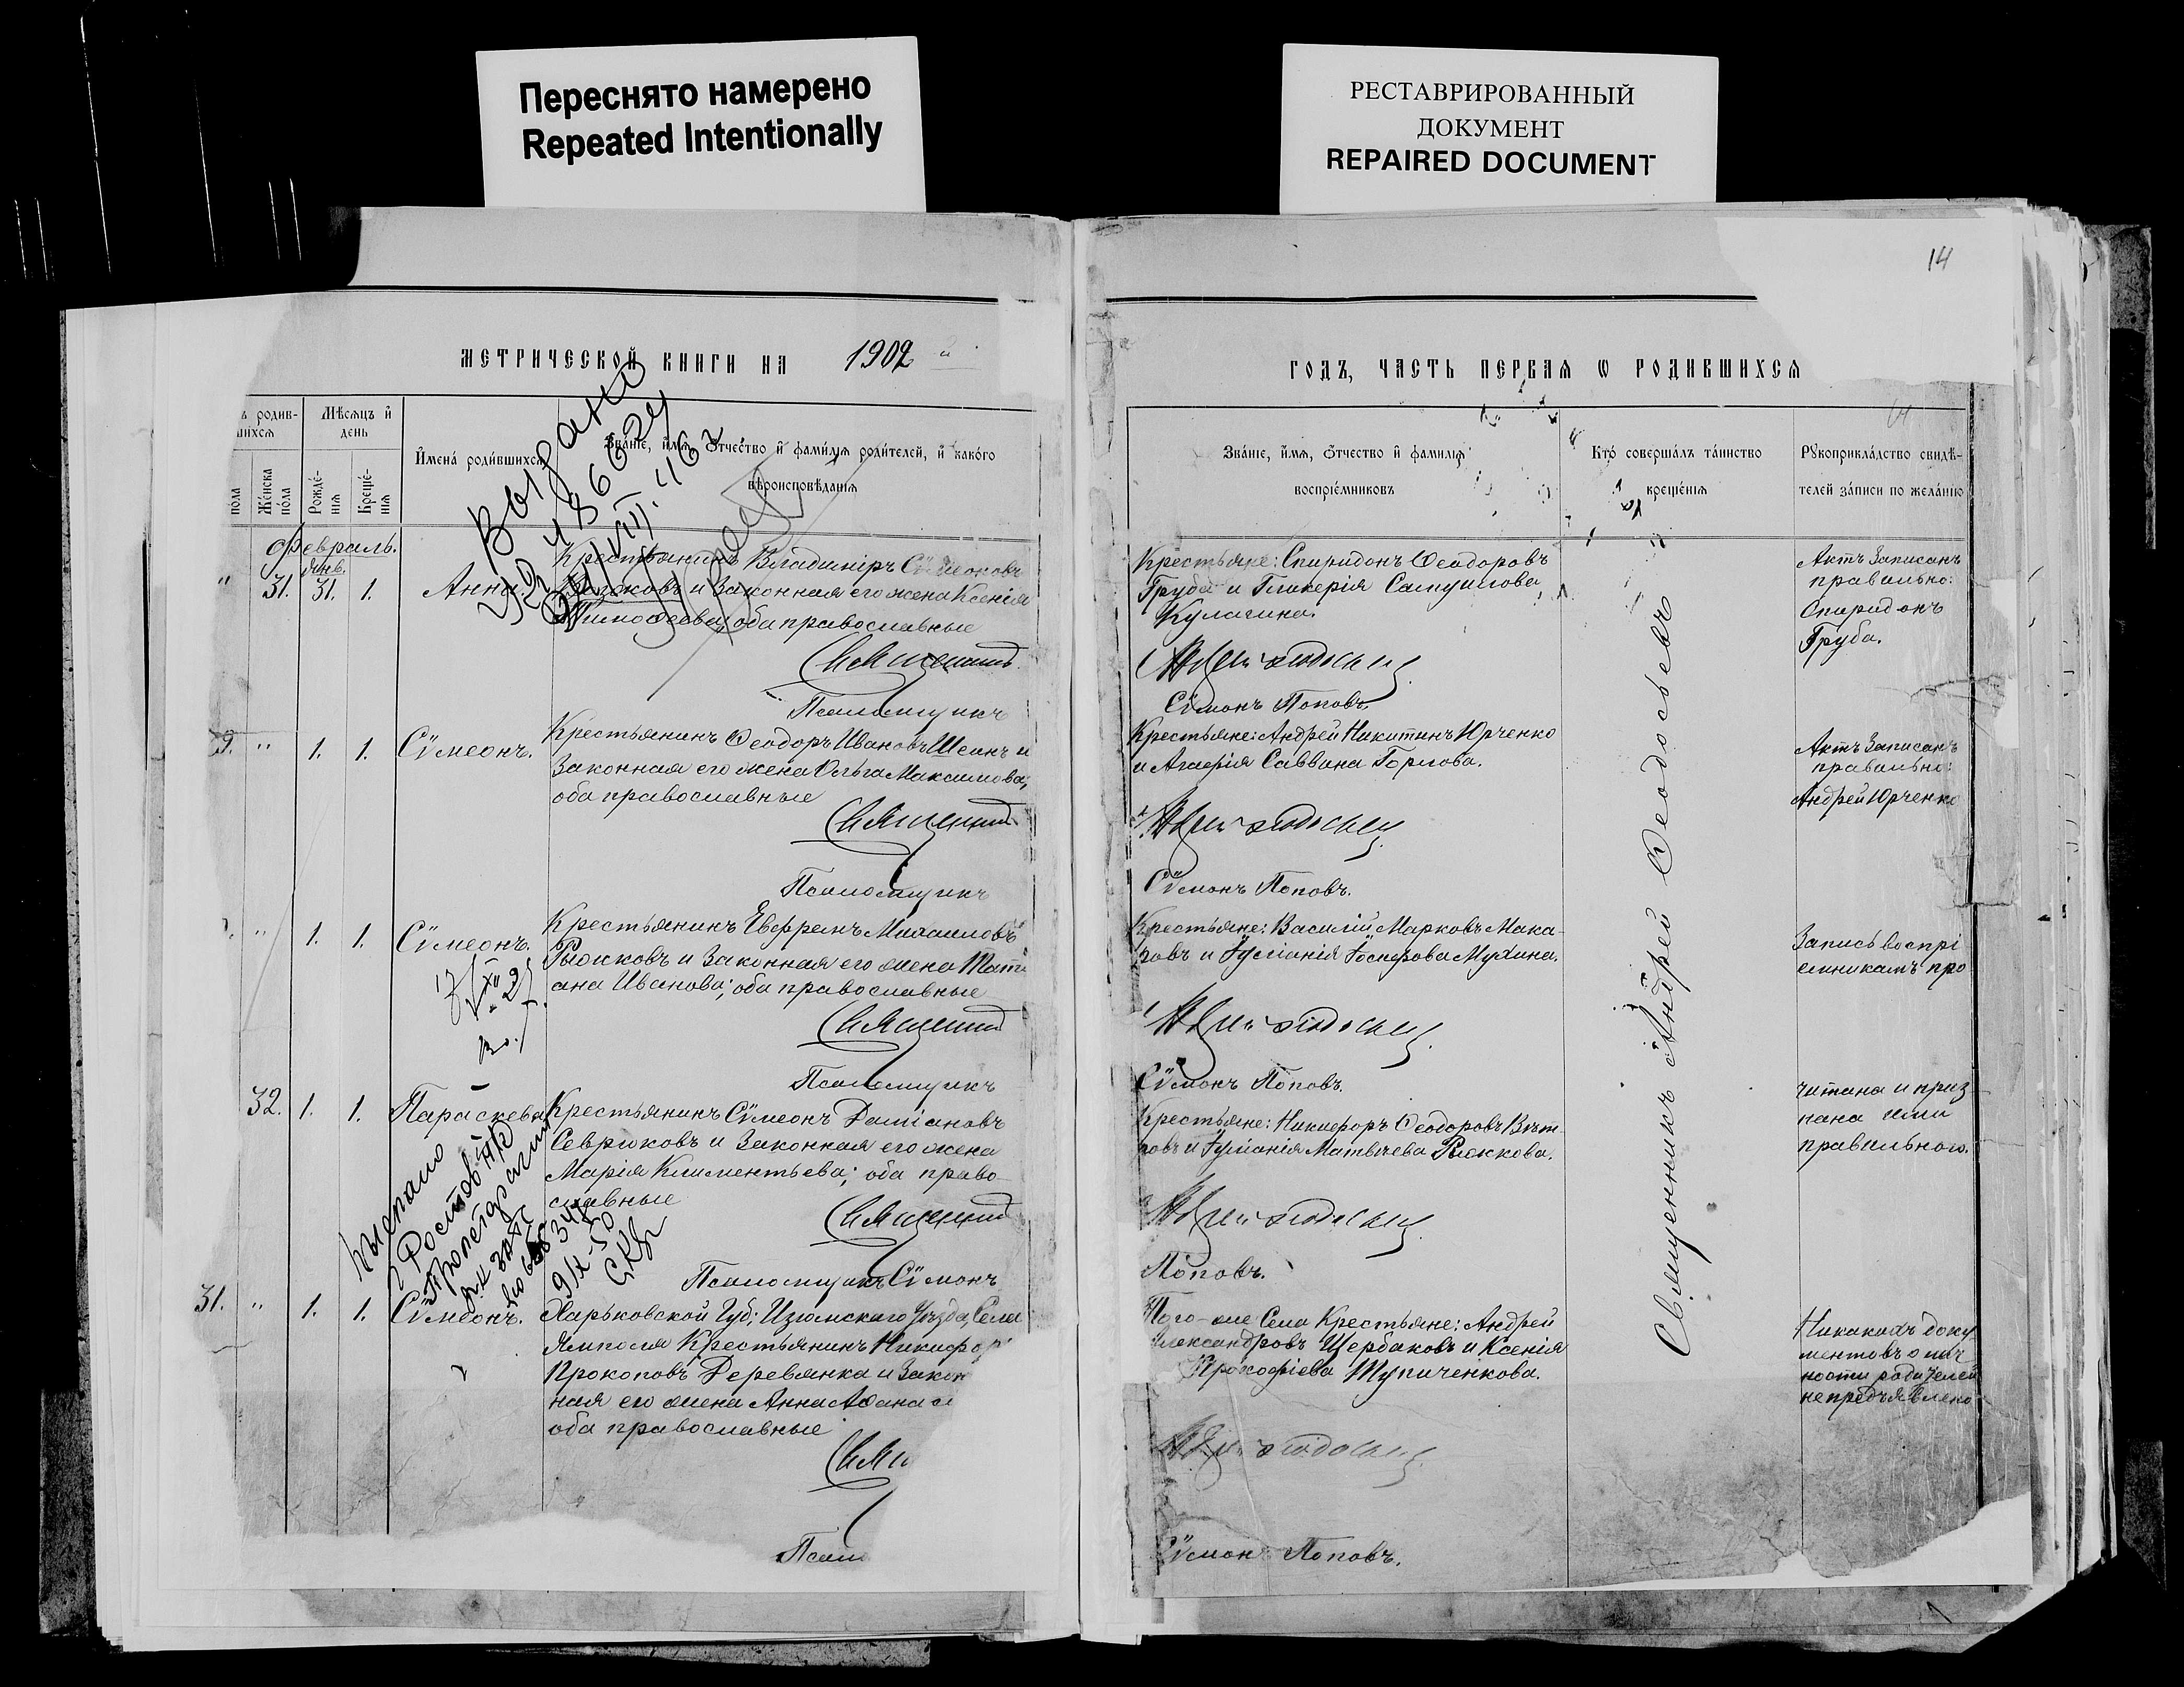 Переснято намерено
Repeated Intentionally
РЕСТАВРИРОВАННЫЙ
ДОКУМЕНТ
REPAIRED DOCUMENT
14
МЕТРИЧЕСКОЙ КНИГИ НА 1902
ГОДЪ, ЧАСТЬ ПЕРВАЯ Ѡ РОДИВШИХСЯ
ъ родив-
шихся
Мѣсяцъ и
день
Имена родившихся
Званіе, имя, отчество и фамилія родителей, и какого
вѣроисповѣданія
пола
Женска пола
Рожденія
Крещенія
Званіе, имя, отчество и фамилія
воспріемниковъ
Кто совершалъ таинство
крещенія
Рукоприкладство свидѣ-
телей записи по желанію
Выдано
Февраль.
Янв.
" 31. 31. 1. Анна.
Крестьянинъ Владиміръ Сѵмеоновъ
и законная его жена Ксенія
Тимоѳеева; оба православные
Священникъ
Псаломщикъ
Крестьяне: Спиридонъ Ѳеодоровъ
Груба и Гликерія Самуилова
Кулагина.
Андрей Ѳеодосьевъ
Сѵмонъ Поповъ.
Актъ записанъ
правильно:
Спиридонъ
Груба.
9. " 1. 1. Сѵмеонъ.
Крестьянинъ Ѳеодоръ Ивановъ Шеинъ и
законная его жена Ольга Максимова;
оба православные
Священникъ
Псаломщикъ
Крестьяне: Андрей Никитинъ Юрченко
и Агаѳія Саввина Горлова.
Андрей Ѳеодосьевъ
Сѵмонъ Поповъ.
Актъ записанъ
правильно:
Андрей Юрченко
" 1. 1. Сѵмеонъ.
Крестьянинъ Евфремъ Михаиловъ
Рыжковъ и законная его жена Тати
ана Иванова; оба православные
Священникъ
Псаломщикъ
Крестьяне: Василій Марковъ Мака-
ровъ и Іуліанія Іосифова Мухина.
Андрей Ѳеодосьевъ
Сѵмонъ Поповъ.
Запись воспрі
емникамъ про
32. 1. 1. Параскева
Крестьянинъ Сѵмеонъ Даміановъ
Севрюковъ и законная его жена
Марія Климентьева; оба право-
славные
Священникъ
Псаломщикъ Сѵмонъ
Крестьяне: Никифоръ Ѳеодоровъ Вѣт-
ровъ и Іуліанія Матвѣева Рыжкова.
Андрей Ѳеодосьевъ
Поповъ.
читана и приз
нана ими
правильною.
31. " 1. 1. Сѵмеонъ.
Харьковской Губ; Изюмскаго Уѣзда, Села
Ямполя Крестьянинъ Никифоръ
Прокоповъ Деревянка и закон
ная его жена Анна Аѳанась
оба православные
Свящ
Псал
Того-же Села Крестьяне: Андрей
Александровъ Щербаковъ и Ксенія
Прокофіева Тупиченкова.
Андрей Ѳеодосьевъ
Сѵмонъ Поповъ.
Никакихъ доку
ментовъ о лич
ности родителей
не предъявлено
Священникъ Андрей Ѳеодосьевъ